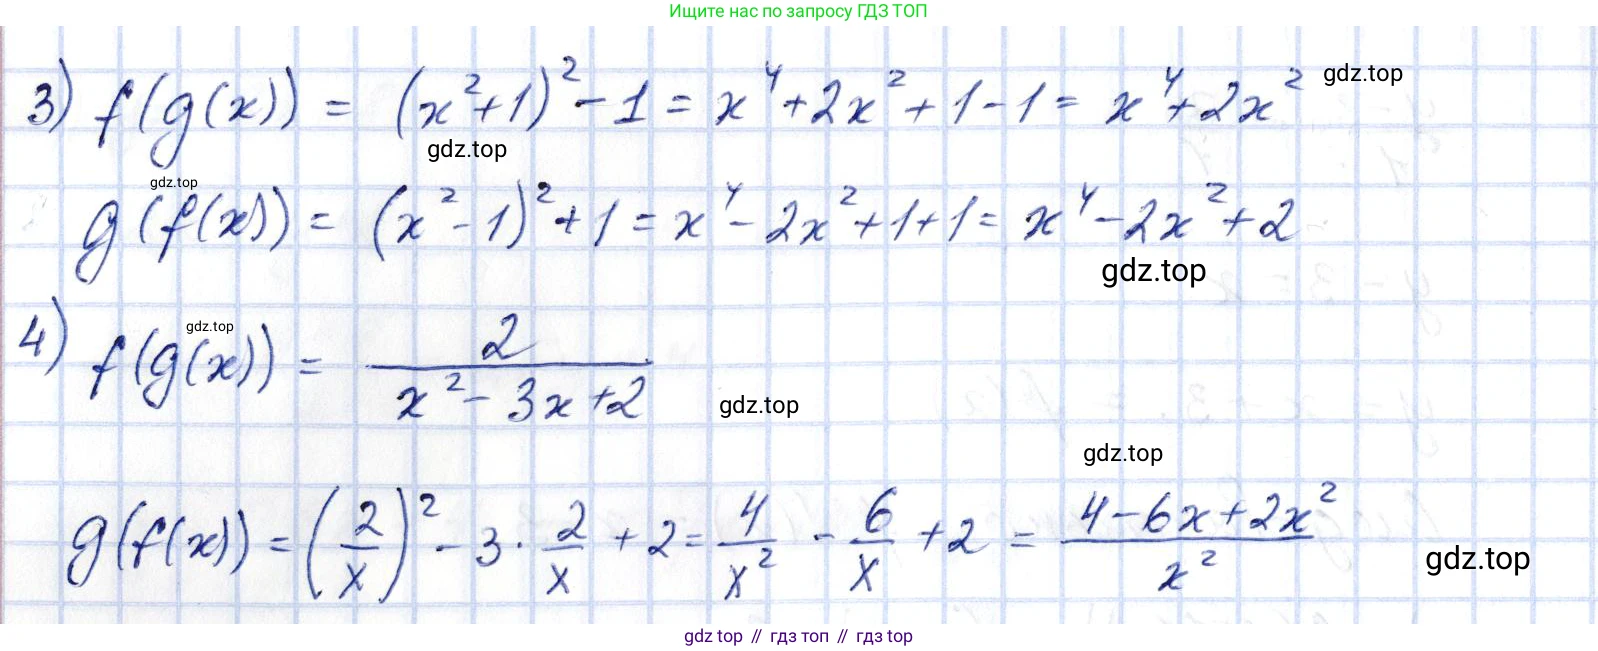 Ищите нас по запросу ГДЗ ТОП
3) f(g(x)) = (x²+1)² - 1 = x⁴ + 2x² + 1 - 1 = x⁴ + 2x² gdz.top
gdz.top
gdz.top
g(f(x)) = (x² - 1)² + 1 = x⁴ - 2x² + 1 + 1 = x⁴ - 2x² + 2
gdz.top
gdz.top
4) f(g(x)) = 2/(x² - 3x + 2) gdz.top
gdz.top
g(f(x)) = (2/x)² - 3 · 2/x + 2 = 4/x² - 6/x + 2 = (4 - 6x + 2x²)/x² gdz.top
gdz top // гдз топ // gdz top